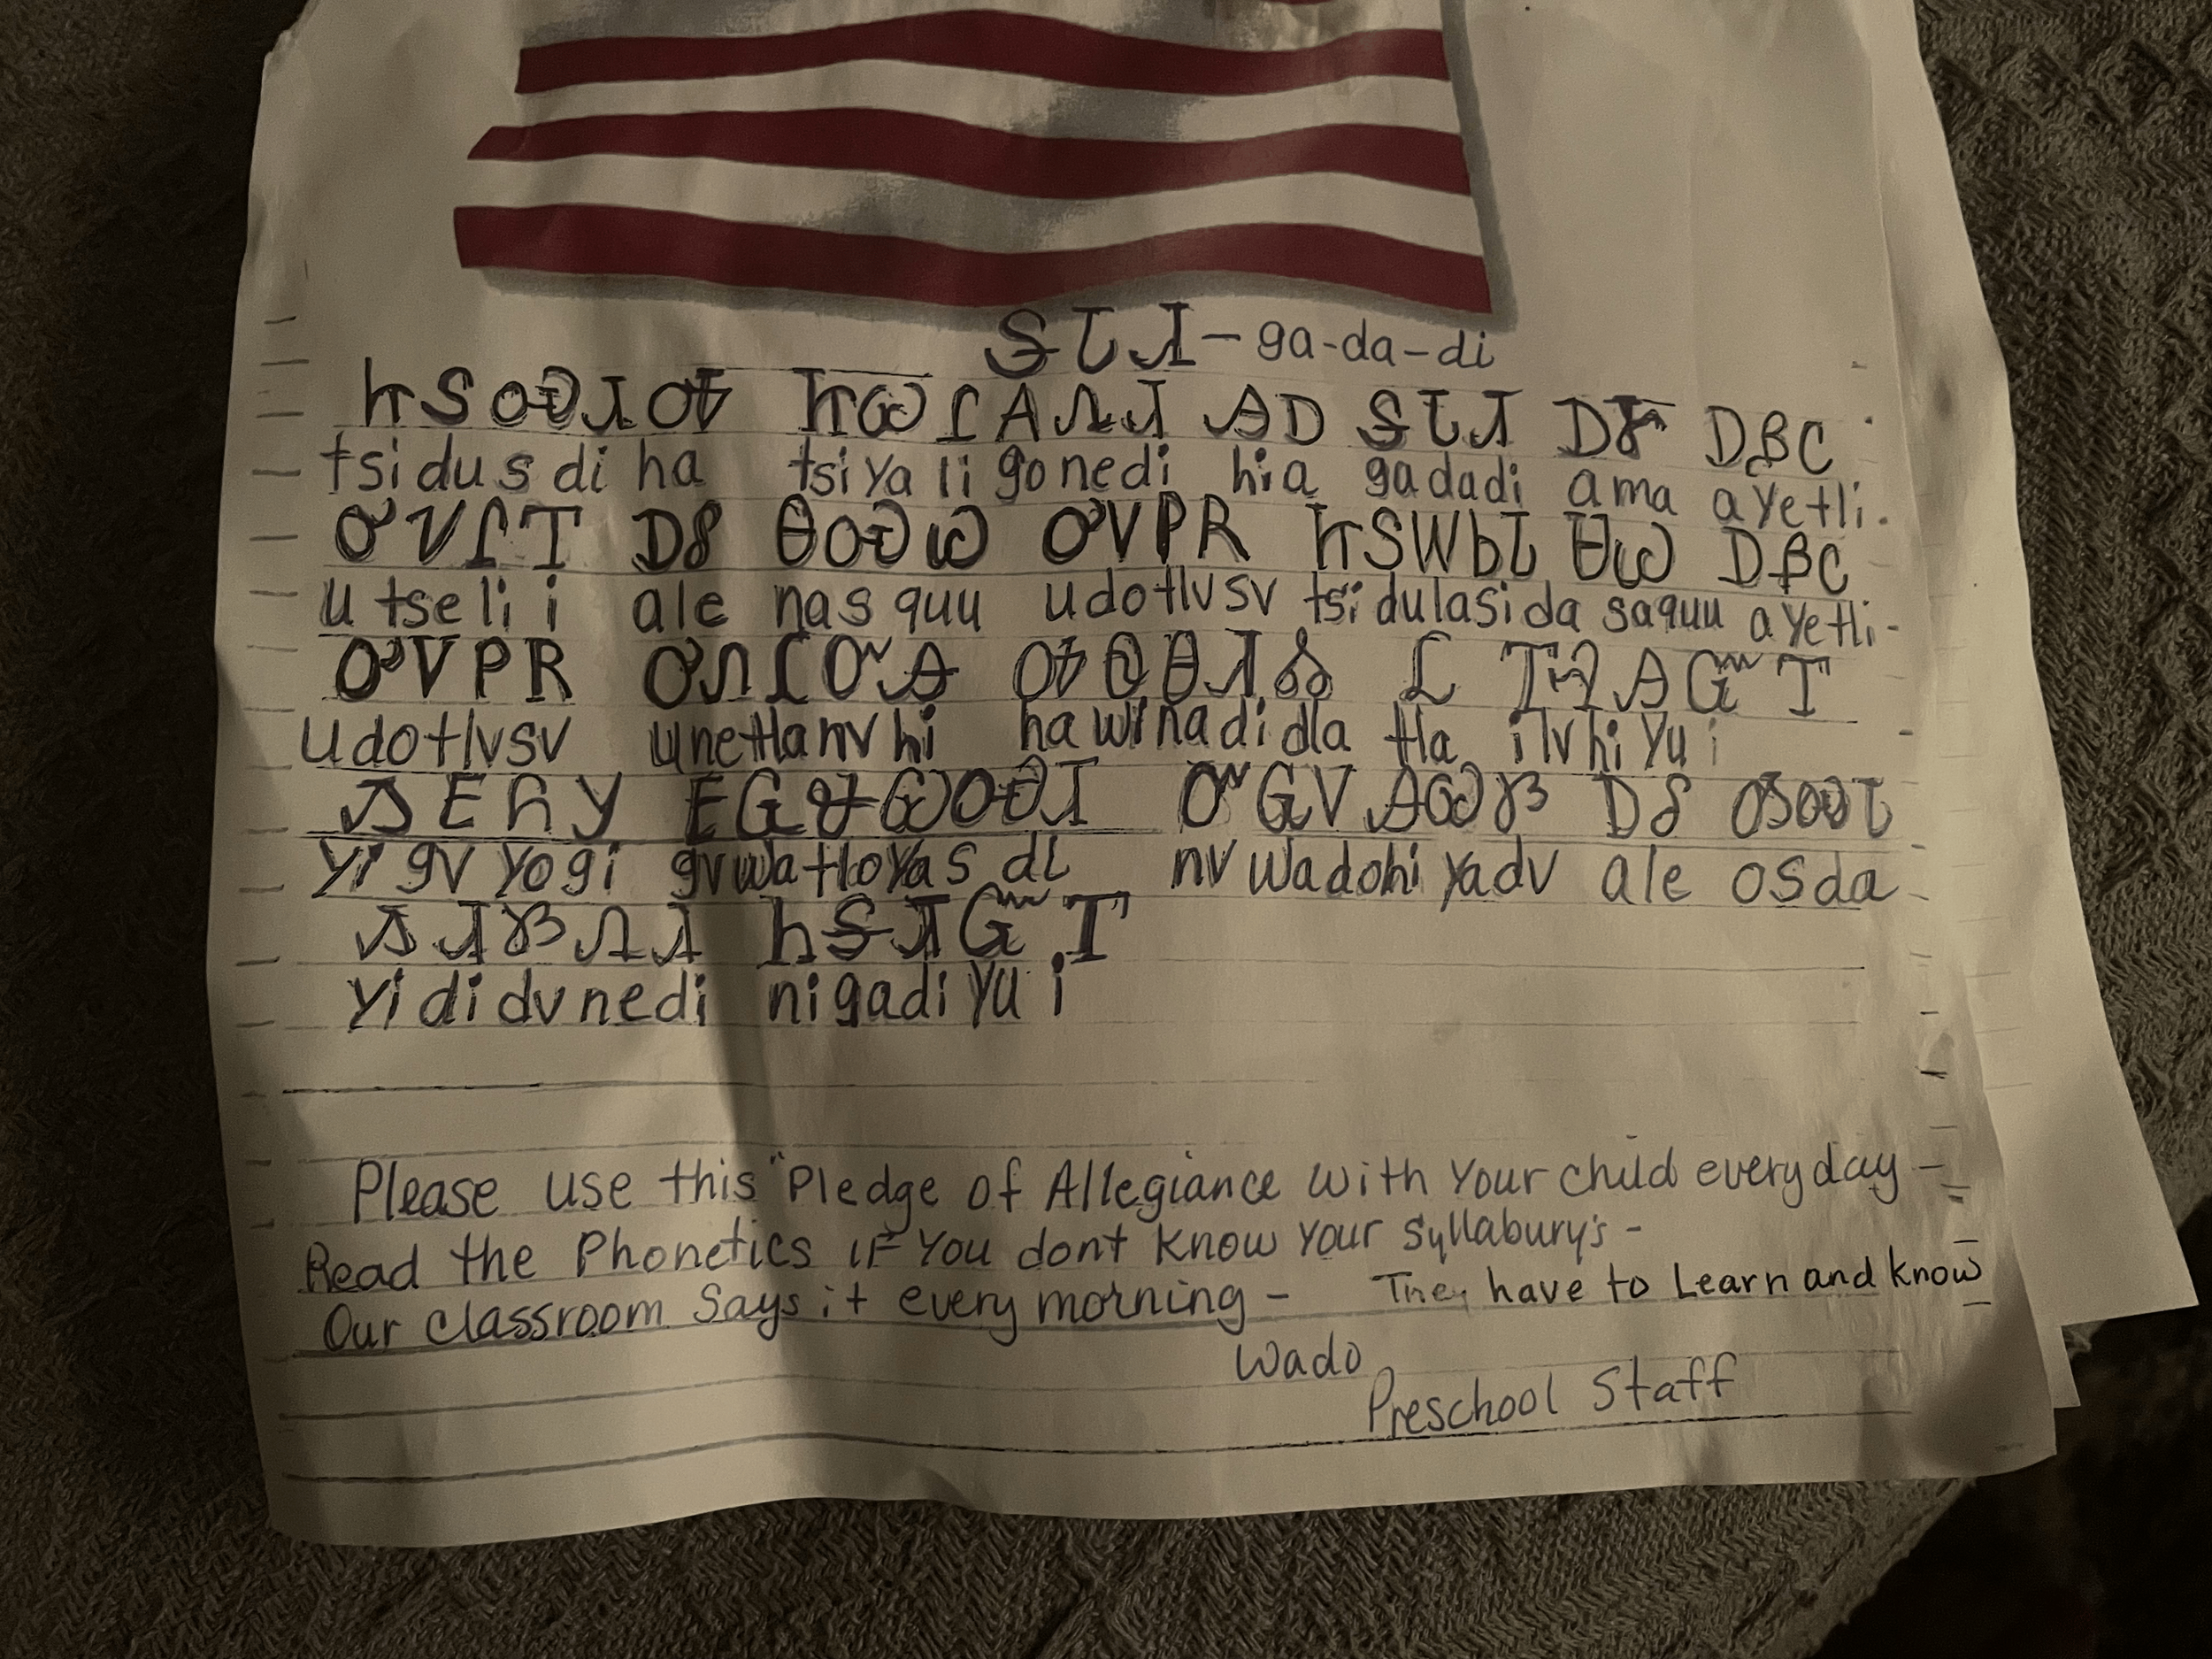 ᎦᏓᏗ - ga-da-di
ᏥᏚᏍᏗᎭ ᏥᏯᎵᎪᏁᏗ ᎯᎠ ᎦᏓᏗ ᎠᎹ ᎠᏰᏟ
tsidusdi ha tsiyaligonedi hia gadadi ama ayetli.
ᎤᏤᎵᎢ ᎠᎴ ᎾᏍᏊ ᎤᏙᏢᏒ ᏥᏚᎳᏏᏓ ᏌᏊ ᎠᏰᏟ
utselii ale nasquu udotlvsv tsidulasida saquu ayetli-
ᎤᏙᏢᏒ ᎤᏁᏝᏅᎯ ᎭᏫᎾᏗᏜ Ꮭ ᎢᎸᎯᏳᎢ
udotlvsv unetlanvhi hawinadidla tla ilvhiyu i
ᏱᎬᏲᎩ ᎬᏩᏠᏯᏍᏗ ᏅᏩᏙᎯᏯᏛ ᎠᎴ ᎣᏍᏓ
yi gv yogi gvwatloyas di nv wadohi yadv ale osda
ᏱᏗᏛᏁᏗ ᏂᎦᏗᏳᎢ
yididvnedi nigadiyu i
Please use this "Pledge of Allegiance with your child everyday -
Read the Phonetics if you dont know your Syllabury's -
Our classroom says it every morning - They have to Learn and know
Wado
Preschool Staff